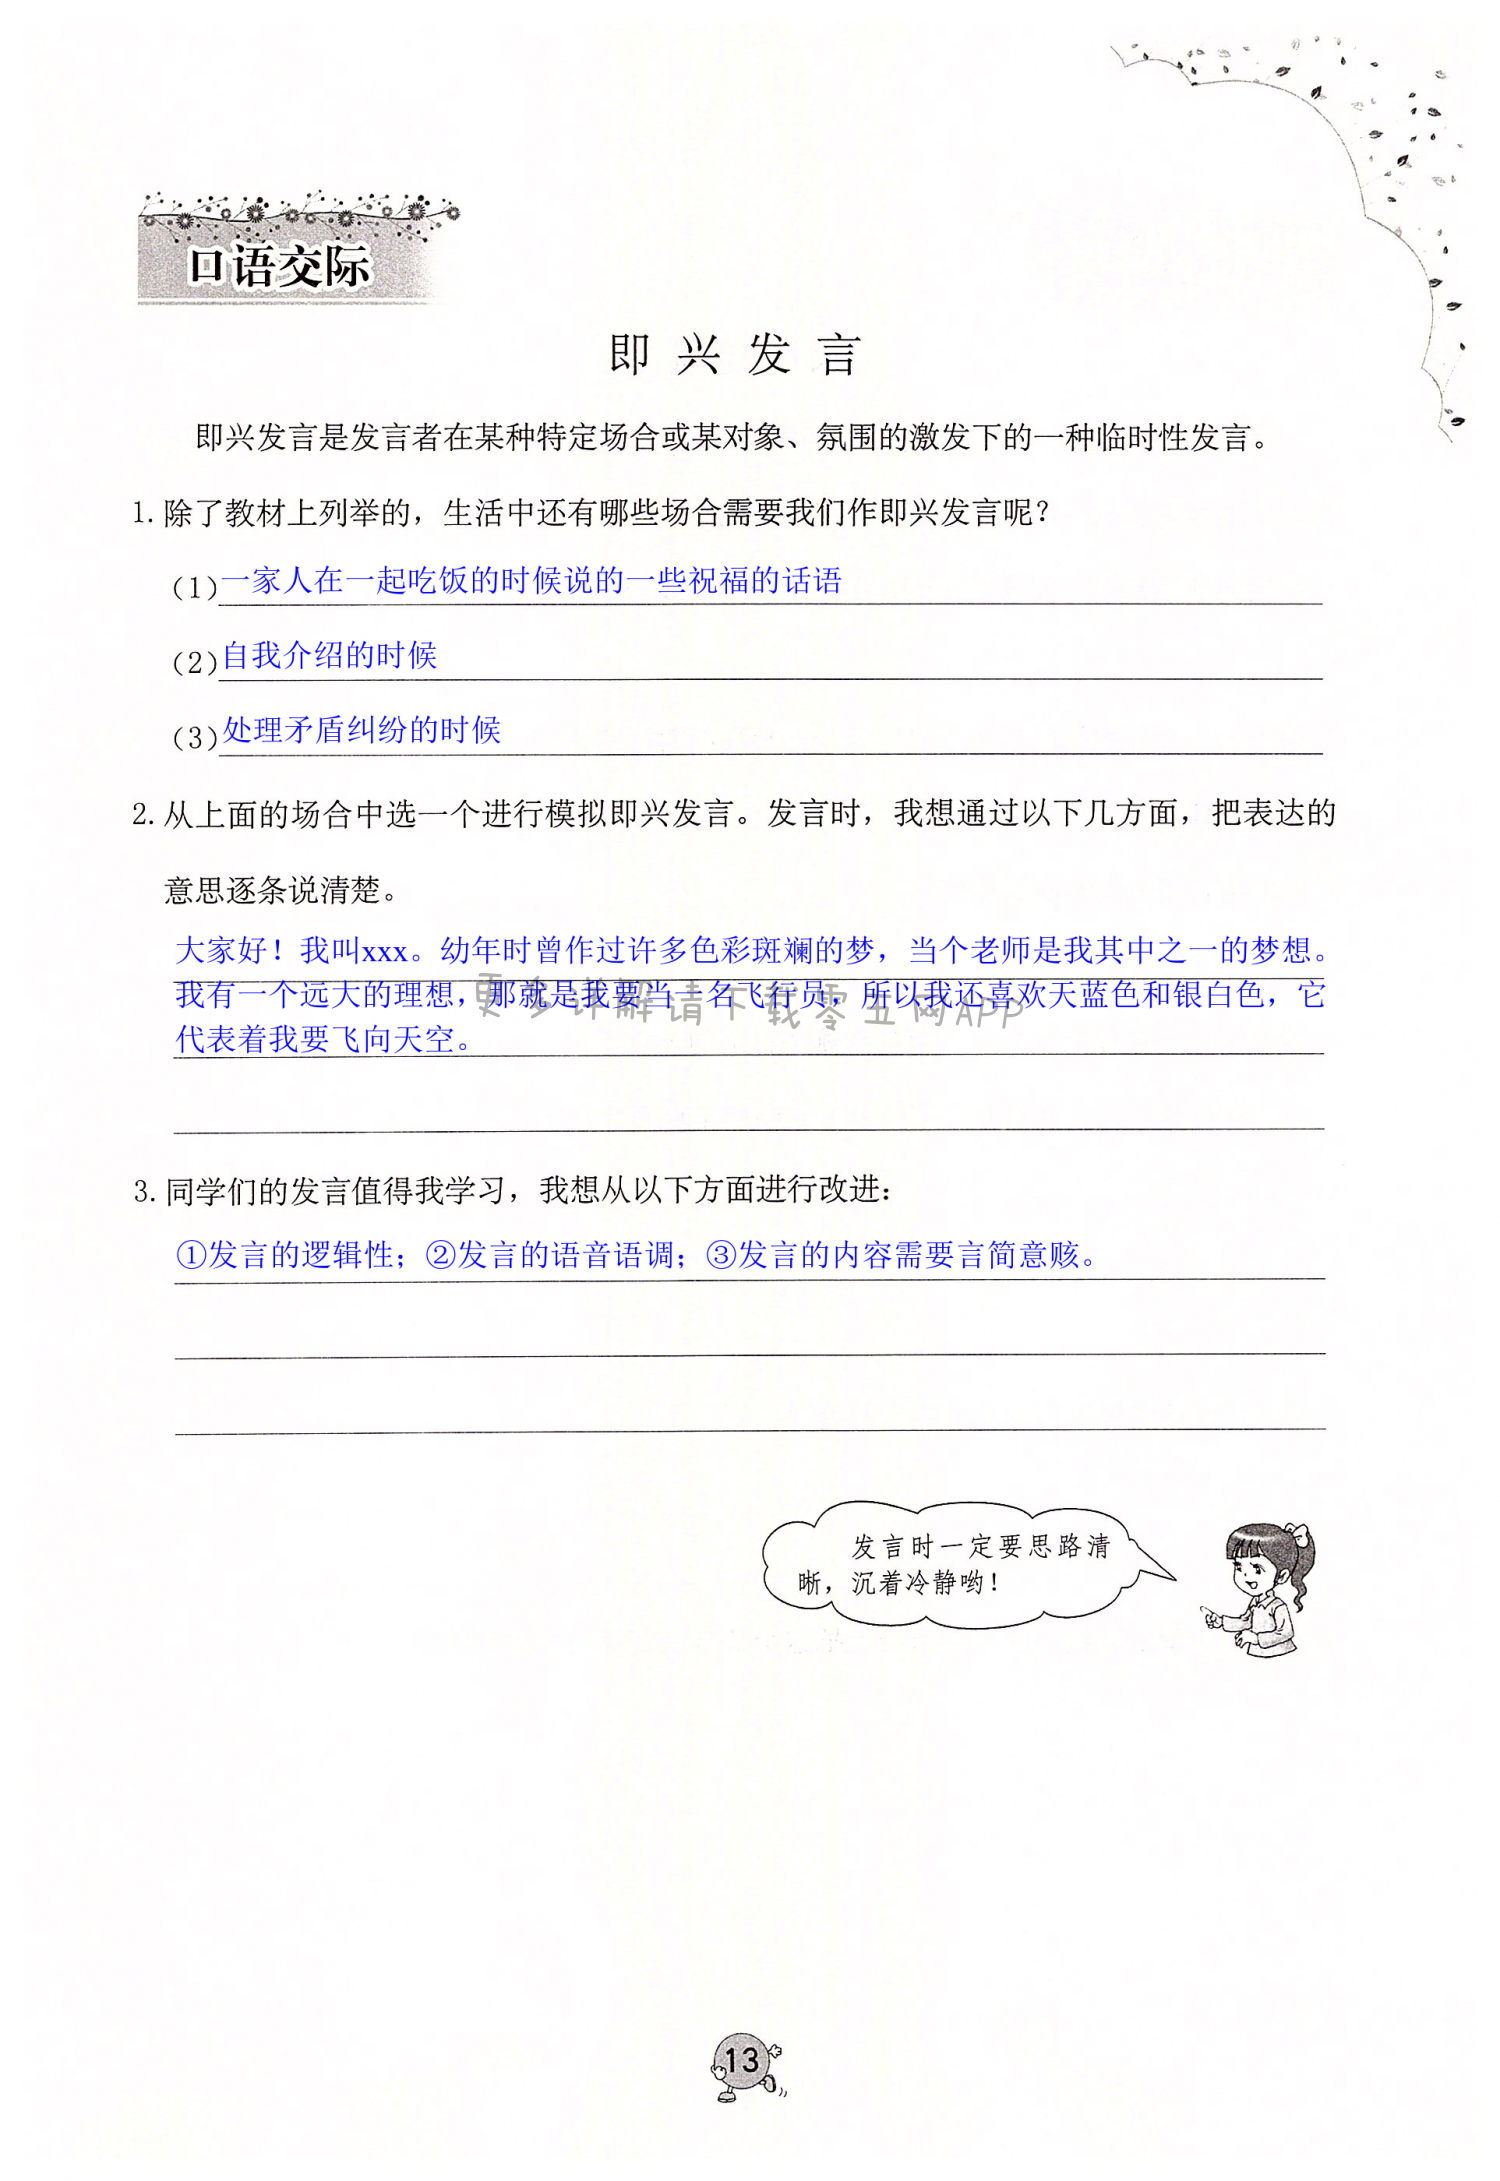 口语交际
即兴发言
即兴发言是发言者在某种特定场合或某对象、氛围的激发下的一种临时性发言。
1. 除了教材上列举的，生活中还有哪些场合需要我们作即兴发言呢？
(1)一家人在一起吃饭的时候说的一些祝福的话语
(2)自我介绍的时候
(3)处理矛盾纠纷的时候
2. 从上面的场合中选一个进行模拟即兴发言。发言时，我想通过以下几方面，把表达的
意思逐条说清楚。
大家好！我叫xxx。幼年时曾作过许多色彩斑斓的梦，当个老师是我其中之一的梦想。
我有一个远大的理想，那就是我要当一名飞行员，所以我还喜欢天蓝色和银白色，它
更多详解请下载零五网APP
代表着我要飞向天空。
3. 同学们的发言值得我学习，我想从以下方面进行改进：
①发言的逻辑性；②发言的语音语调；③发言的内容需要言简意赅。
发言时一定要思路清
晰，沉着冷静哟！
13